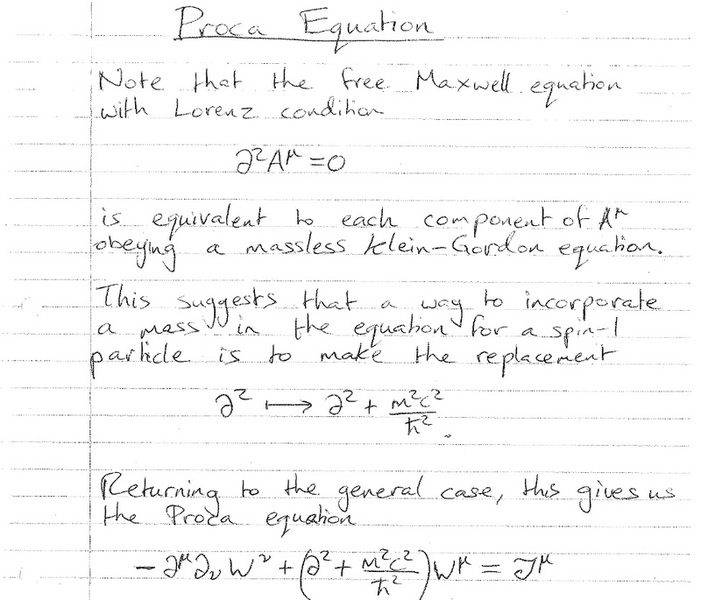 Proca Equation
Note that the free Maxwell equation
with Lorenz condition
∂²A^μ = 0
is equivalent to each component of A^μ
obeying a massless Klein-Gordon equation.
This suggests that a way to incorporate
a mass in the equation for a spin-1
particle is to make the replacement
∂² ⟼ ∂² + m²c²/ħ².
Returning to the general case, this gives us
the Proca equation
-∂^μ∂_νW^ν + (∂² + m²c²/ħ²)W^μ = J^μ